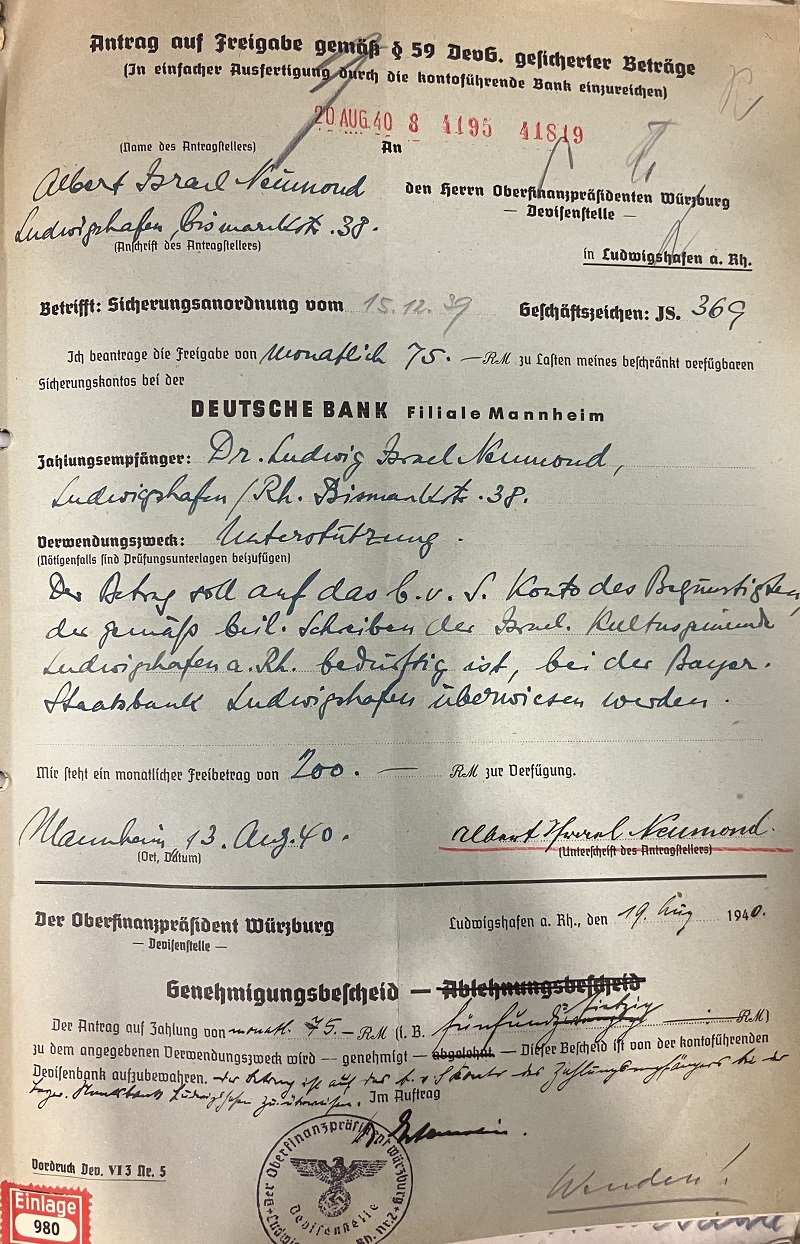 Antrag auf Freigabe gemäß § 59 DevG. gesicherter Beträge
(In einfacher Ausfertigung durch die kontoführende Bank einzureichen)
20 AUG. 40 8 4195 41819
(Name des Antragstellers)
An
Albert Israel Neumond
den Herrn Oberfinanzpräsidenten Würzburg
— Devisenstelle —
Ludwigshafen, Bismarkstr. 38.
(Anschrift des Antragstellers)
in Ludwigshafen a. Rh.
Betrifft: Sicherungsanordnung vom 15.12.39 Geschäftszeichen: JS. 369
Ich beantrage die Freigabe von monatlich 75.— RM zu Lasten meines beschränkt verfügbaren
Sicherungskontos bei der
DEUTSCHE BANK Filiale Mannheim
Zahlungsempfänger: Dr. Ludwig Israel Neumond,
Ludwigshafen / Rh. Bismarkstr. 38.
Verwendungszweck: Unterstützung.
(Nötigenfalls sind Prüfungsunterlagen beizufügen)
Der Betrag soll auf das b.v.S. Konto des Begünstigten,
der gemäß beil. Schreiben der Israel. Kultusgemeinde
Ludwigshafen a. Rh. bedürftig ist, bei der Bayer.
Staatsbank Ludwigshafen überwiesen werden.
Mir steht ein monatlicher Freibetrag von 200.— RM zur Verfügung.
Mannheim, 13. Aug. 40.
(Ort, Datum)
Albert Israel Neumond.
(Unterschrift des Antragstellers)
Der Oberfinanzpräsident Würzburg
— Devisenstelle —
Ludwigshafen a. Rh., den 19. Aug 1940.
Genehmigungsbescheid — Ablehnungsbescheid
Der Antrag auf Zahlung von monatl. 75.— RM (i. B. fünfundsiebzig RM)
zu dem angegebenen Verwendungszweck wird — genehmigt — abgelehnt. — Dieser Bescheid ist von der kontoführenden
Devisenbank aufzubewahren. Der Betrag ist auf das b.v.S Konto des Zahlungsempfängers bei der
Bayer. Staatsbank Ludwigshafen zu überweisen. Im Auftrag
Der Oberfinanzpräsident Würzburg
Devisenstelle
Vordruck Dev. VI 3 Nr. 5
Wenden!
Einlage
980